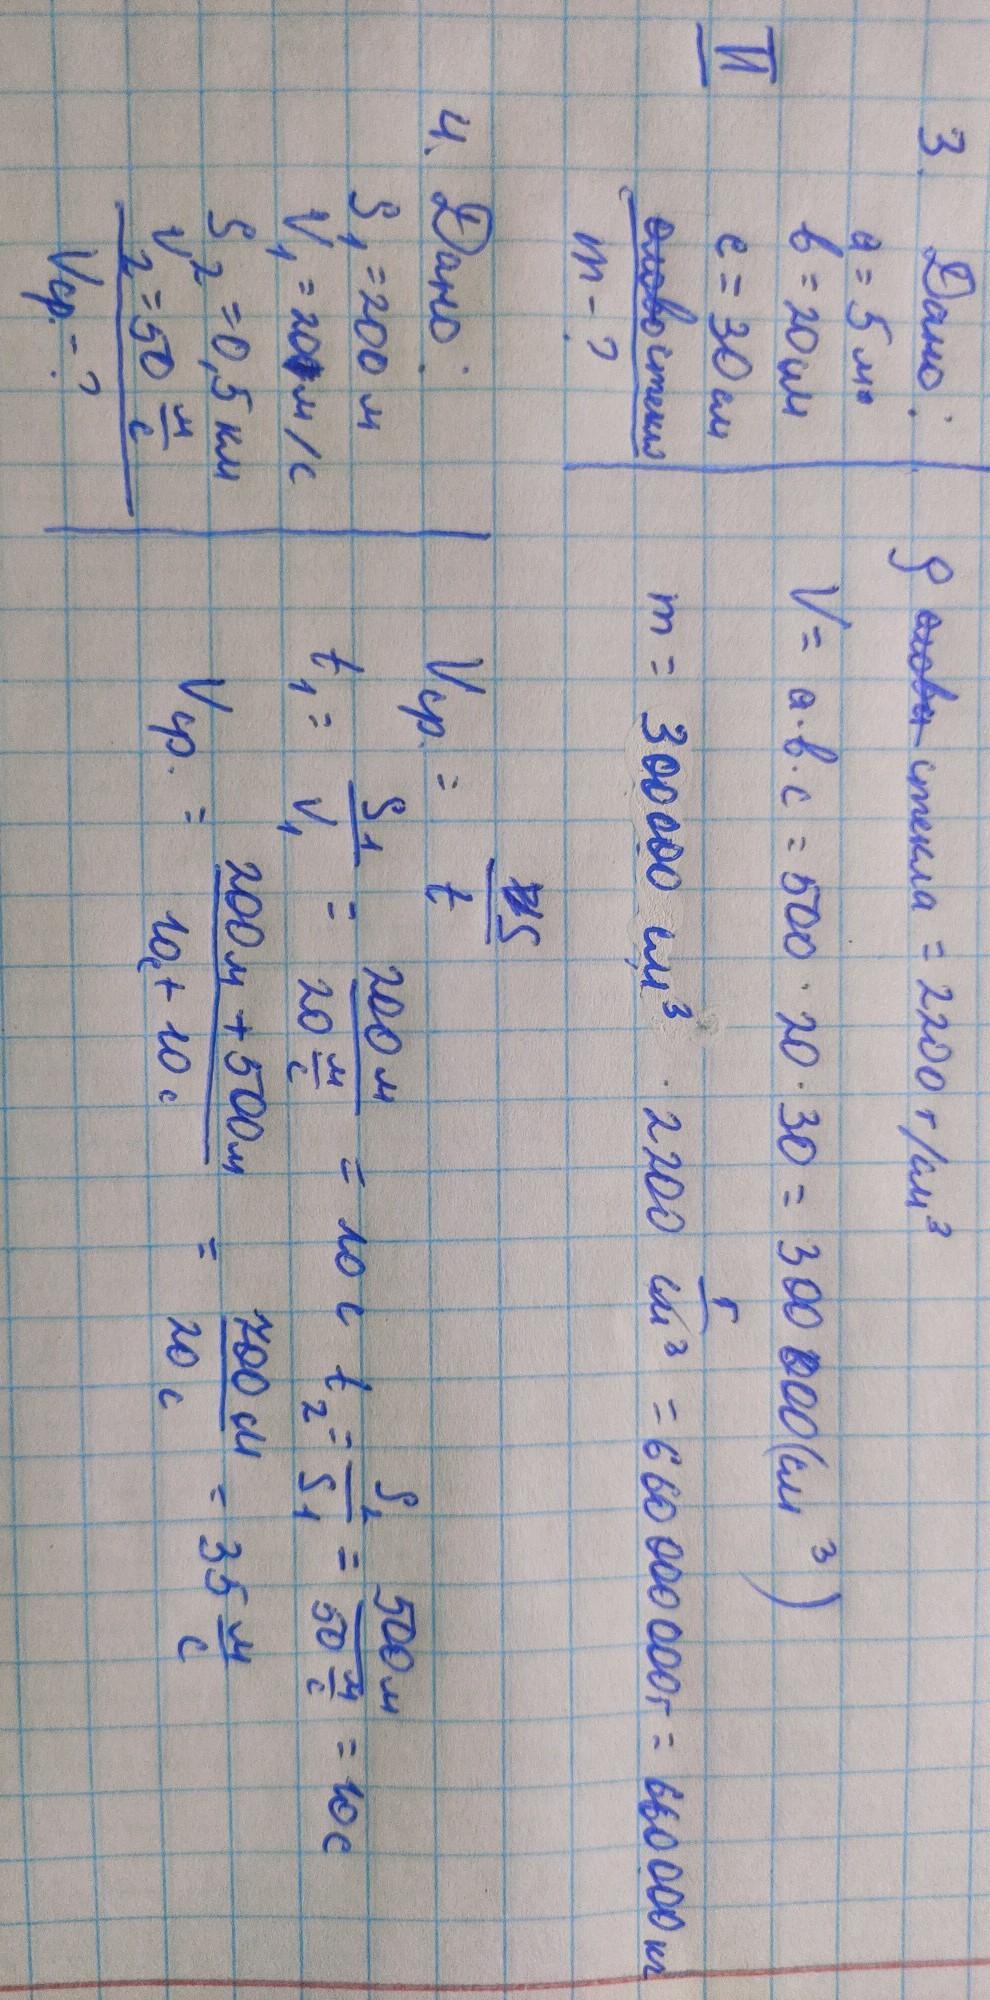 II
3. Дано:
a = 5 м
в = 20 см
с = 30 см
стекло
m - ?
ρ стекла = 2200 г/см³
V = a·в·c = 500·20·30 = 300 000 (см³)
m = 300000 см³ · 2200 г/см³ = 660 000 000 г = 660 000 кг
4. Дано:
S₁ = 200 м
V₁ = 20 м/с
S₂ = 0,5 км
V₂ = 50 м/с
Vср. - ?
Vср. = S/t
t₁ = S₁/V₁ = 200 м/20 м/с = 10 с t₂ = S₂/S₁ = 500 м/50 м/с = 10 с
Vср. = 200 м + 500 м/10с + 10 с = 700 м/20 с = 35 м/с